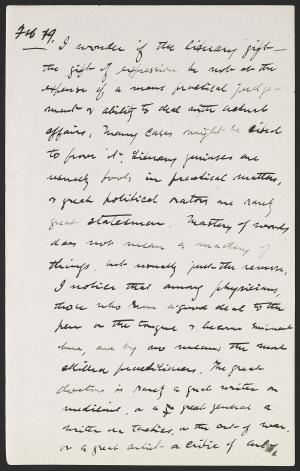 Feb 19.
I wonder if the literary gift —
the gift of expression be not at the
expense of a mans practical judge-
ment & ability to deal with actual
affairs. Many cases might be cited
to prove it. Literary geniuses are
usually fools in practical matters,
& great political orators are rarely
great statesmen. Mastery of words
does not mean a mastery of
things, but usually just the reverse.
I notice that among physicians,
those who run a good deal to the
pen or the tongue & become eminent
there, are by no means the most
skilled practitioners. The great
doctor is rarely a great writer on
medicine, or a great general a
writer on tactics, or the art of war.
or a great artist a critic of art.